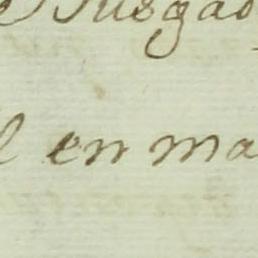 Jusgad
en ma